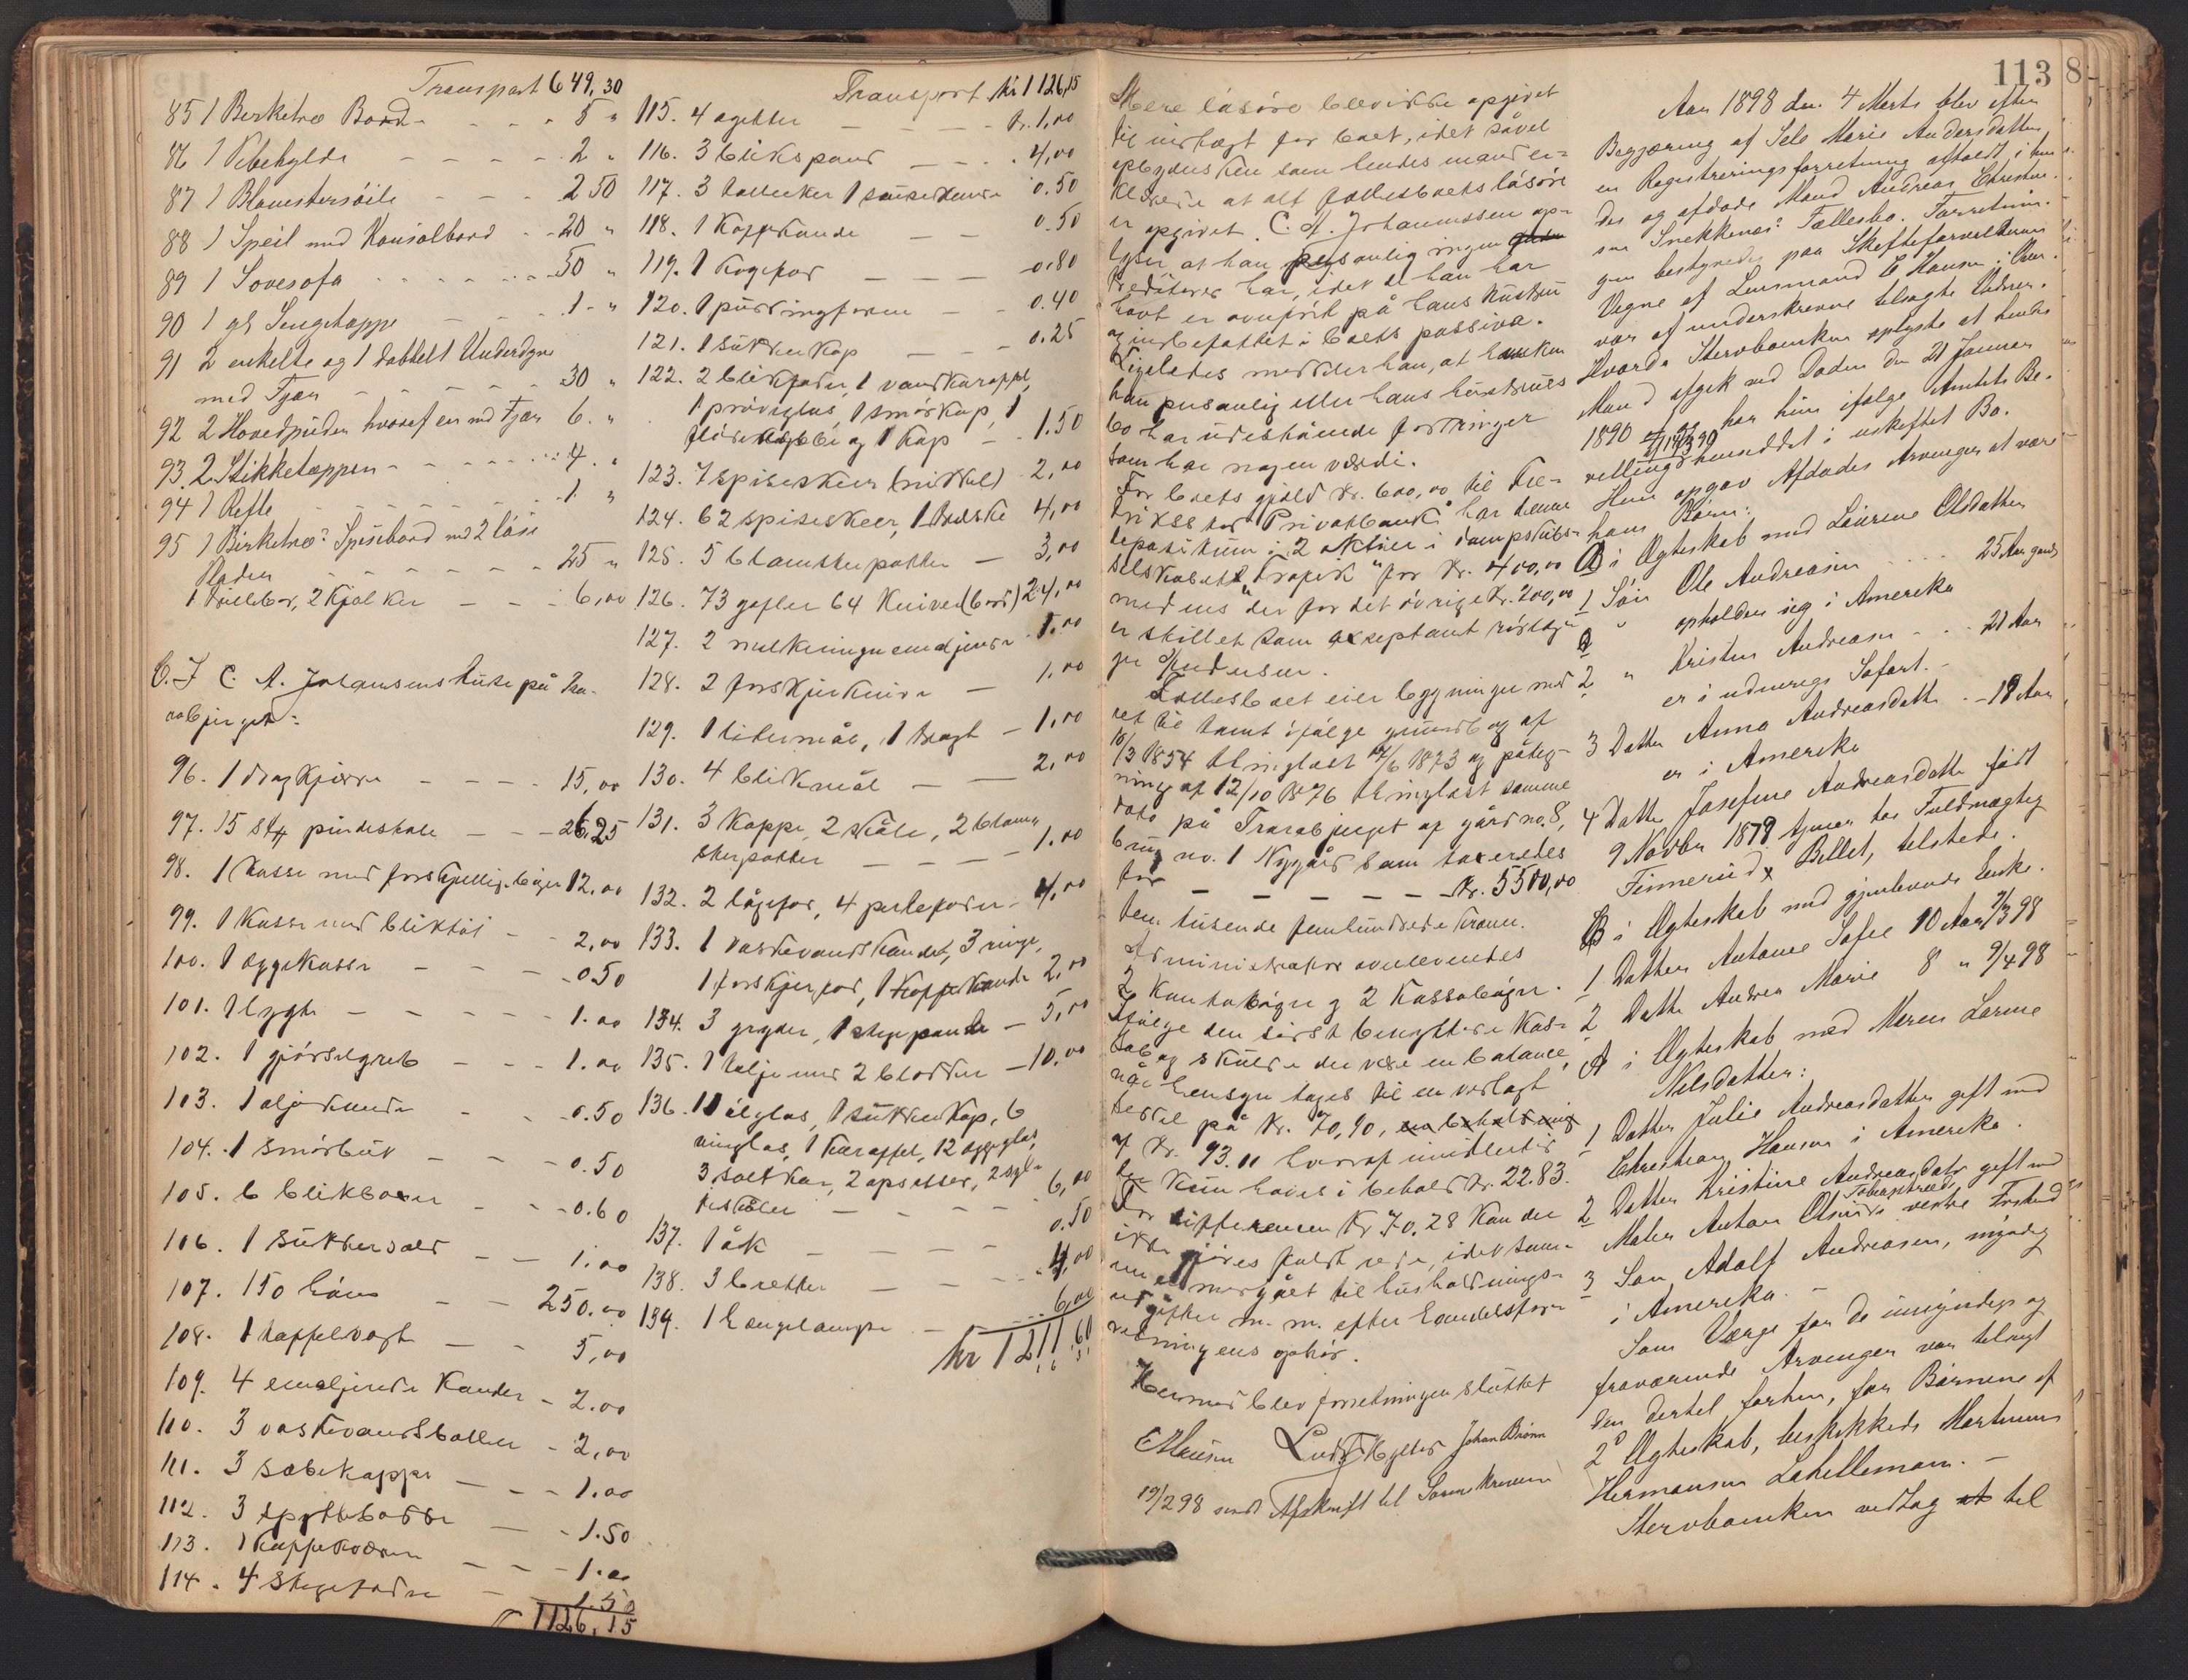 Transport 649,30
85 1 Birketræ Bord - - - - 5 "
86 1 Pibehylde - - - - 2 "
87 1 Blomstersöile - - - 2 50
88 1 Speil med Konsolbord - - 20 "
89 1 Sovesofa - - - - - - 50 "
90 1 gl Sengetæppe - - - - 1 - "
91 2 enkelte og 1 dobbelt Underdyne
med Fjær - - - - - - 30 "
92 2 Hovedpuder hvoraf en med Fjær 6. "
93. 2 Stikketæpper - - - - - - 4. "
94 1 Refle - - - - - - 1. "
95 1 Birketræs Spisebord med 2 löse
Plader - - - - - - 25 "
1 , 2 - - - 6,00
C. I C. A. Johansens huse på Tra-
nebjerget:
96. 1 dragkjærre - - - - 15,00
97. 15 stk - - - 26,25
98. 1 Kasse med forskjellige böger 12,00
99. 1 Kasse med bliktöi - - 2,00
100. 1 æggekasse - - - 0.50
101. 1 lygte - - - - - - 1.00
102. 1 gjödselgreb - - - 1.00
103. 1 oljekande - - - 0.50
104. 1 smörbut - - - 0.50
105. 6 blikboxer - - - 0.60
106. 1 sukkersold - - 1.00
107. 150 - - 250.00
108. 1 taffelvægt - - 5,00
109. 4 emaljerede Kander - 2.00
110. 3 vaskevandsboller - 2,00
111. 3 sæbekopper - - - 1.00
112. 3 spyttebakker - - 1.50
113. 1 Kaffekværn - - - 1.00
114. 4 stegefade - 1.50
1126,15
Transport Kr 1126,15
115. 4 - - - Kr. 1,00
116. 3 blikspand - - - 4,00
117. 3 tallerker 1 0.50
118. 1 Kaffekande - - 0.50
119. 1 Kogekar - - - 0.80
120. 1 puddingform - - 0.40
121. 1 sukkerkop - - - 0.25
122. 2 blikfade, 1 vandkaraffel,
1 pröveglas, 1 smörkop, 1
og 1 kop - 1.50
123. 7 spiseskeer (nikkel) - 2,00
124. 62 spiseskeer, 1 4,00
125. 5 blomsterpotter - 3,00
126. 73 gafler 64 Kniver (bord) 24,00
127. 2 1.00
128. 2 forskjærkniver - 1,00
129. 1 litermål, 1 tragt - 1,00
130. 4 blikmål - - 2.00
131. 3 kopper, 2 skåle, 2 blom-
sterpotter - - - - 1.00
132. 2 , 4 - 4,00
133. 1 vaskevandskande, 3 ringe,
1 , 1 kaffekande 2,00
134. 3 gryder, 1 stegepande - 5,00
135. 1 talje med 2 blokker - 10,00
136. 10 ölglas, 1 sukkerkop, 6
vinglas, 1 karaffel, 12 æggeglas,
3 saltkar, 2 opsatser, 2 syl-
teskåler - - - - 6,00
137. 1 åk - - - - 0.50
138. 3 bretter - - - - 4,00
139. 1 hængelampe - - - 6,00
kr 1211,60
Mere lösöre blev ikke opgivet
til indtægt for boet, idet såvel
opbydersken som hendes mand er-
klærede at alt fællesboets lösöre
er opgivet. C. A. Johannessen op-
lyser at han personlig ingen
kreditorer har, idet al han har
havt er overfört på hans hustru
og indbefattet i boets passiva.
Ligeledes meddeler han, at hverken
han personlig eller hans hustrues
bo har udestående fordringer
som har nogen værdi.
For boets gjæld kr. 600,00 til Fre-
drikstad Privatbank har denne
depositum i 2 aktier i dampskibs-
selskabet "Trafik" for kr. 400,00
medens der for det övrige kr. 200,00
er stillet som akseptant
Andersen.
Fællesboet eier bygninger med
ret til tomt ifölge grundbog af
18/3 1854 thinglæst 14/6 1873 og påteg-
ning af 12/10 1876 thinglæst samme
dato på Tranebjerget af gård no. 8,
brug no. 1 Nygård som taxeredes
for - - - - - Kr. 5500,00
fem tusende femhundrede kroner.
Administrator overleveredes
2 Kontobøger og 2 Kassabøger.
Ifølge den sidst benyttede Kas-
sabog skulde der være en balance,
når hensyn tages til en vedlagt
seddel på Kr. 70,90,
af kr. 93.11 hvoraf imidlertid
der kun haves i behold kr. 22.83.
For differencen kr 70.28 kan der
ikke gjöres fuldt rede, idet sum-
men er medgået til husholdnings-
udgifter m. m. efter handelsfor-
retningens ophör.
Hermed blev forretningen sluttet
E Hansen Johan Brönn
19/2 98 sendt Afskrift til Soren
113
8
Aar 1898 den 4 Marts blev efter
Begjæring af Sele Marie Andersdatter
en Registreringsforretning afholdt i hen-
des og afdøde Mand Andreas Christen-
sen Snekkenæs Fællesbo. Forretnin-
gen bestyredes paa Skifteforvalterens
Vegne af Lensmand E Hansen i Over-
vær af underskrevne tilsagte Vidner.
Hvorda Stervboenken oplyste at hendes
Mand afgik ved Døden den 21 Januar
1890 og har hun ifølge Amtets Be-
villing 11/3 90 henviddet i uskiftet Bo.
Hun opgav Afdødes Arvinger at være
hans Børn:
A i Ægteskab med Laurine Olsdatter
1 Søn Ole Andreasen - - - 25 Aar gammel
" opholder sig i Amerika
2 " Kristen Andreasen - - - 21 Aar
er i udenrigs Søfart. -
3 Datter Anna Andreasdatter - - 18 Aar
er i Amerika
4 Datter Josefine Andreasdatter født
9 Novbr 1878 tjener hos Fuldmægtig
Finnerud, Billet, tilstede.
B i Ægteskab med gjenlevende Enke.
1 Datter Antonie Sofie 10 Aar 7/3 98
2 Datter Andrea Marie 8 " 9/4 98
A i Ægteskab med Maren Lorine
Nilsdatter:
1 Datter Julie Andreasdatter gift med
Christian Hansen i Amerika.
2 Datter Kristine Andreasdatr gift med
Maler Anton Olsen vestre Forstad
3 Søn Adolf Andreasen, myndig
i Amerika. -
Som Værge for de umyndige og
fraværende Arvinger var tilsagt
den dertil forhen, for Børnene af
2° Ægteskab, beskikkede Martinus
Hermansen Lahelleman. -
Stervboenken vedtog at til